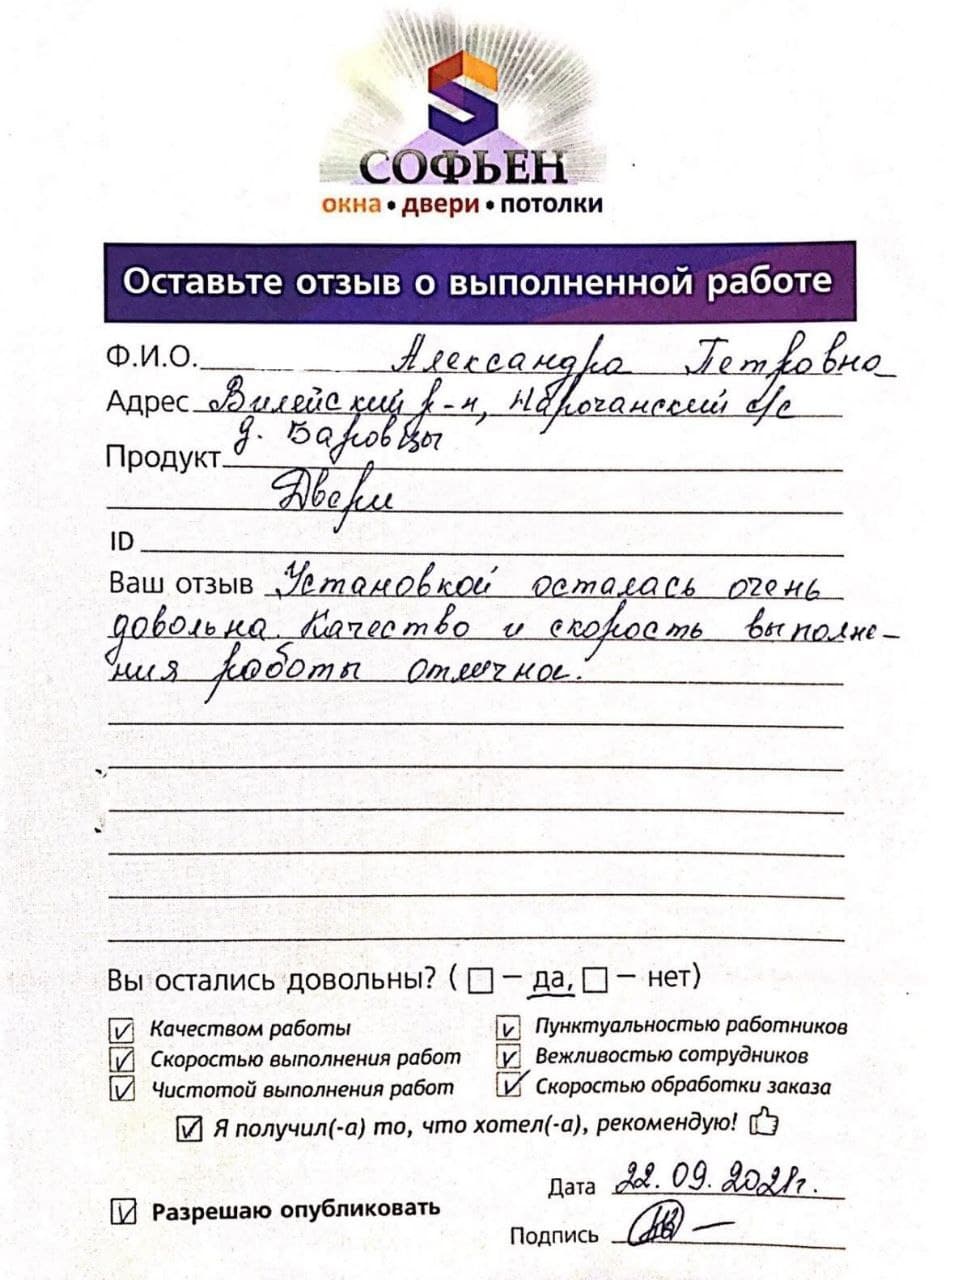 СОФЬЕН
окна • двери • потолки
Оставьте отзыв о выполненной работе
Ф.И.О. Александра Петровна
Адрес Вилейский р-н, Нарочанский с/с
д. Баровцы
Продукт
Двери
ID
Ваш отзыв Установкой осталась очень
довольна. Качество и скорость выполне-
ния работы отличное.
Вы остались довольны? ( □ – да, □ – нет)
☑ Качеством работы ☑ Пунктуальностью работников
☑ Скоростью выполнения работ ☑ Вежливостью сотрудников
☑ Чистотой выполнения работ ☑ Скоростью обработки заказа
☑ Я получил(-а) то, что хотел(-а), рекомендую!
Дата 22.09.2021г.
☑ Разрешаю опубликовать
Подпись